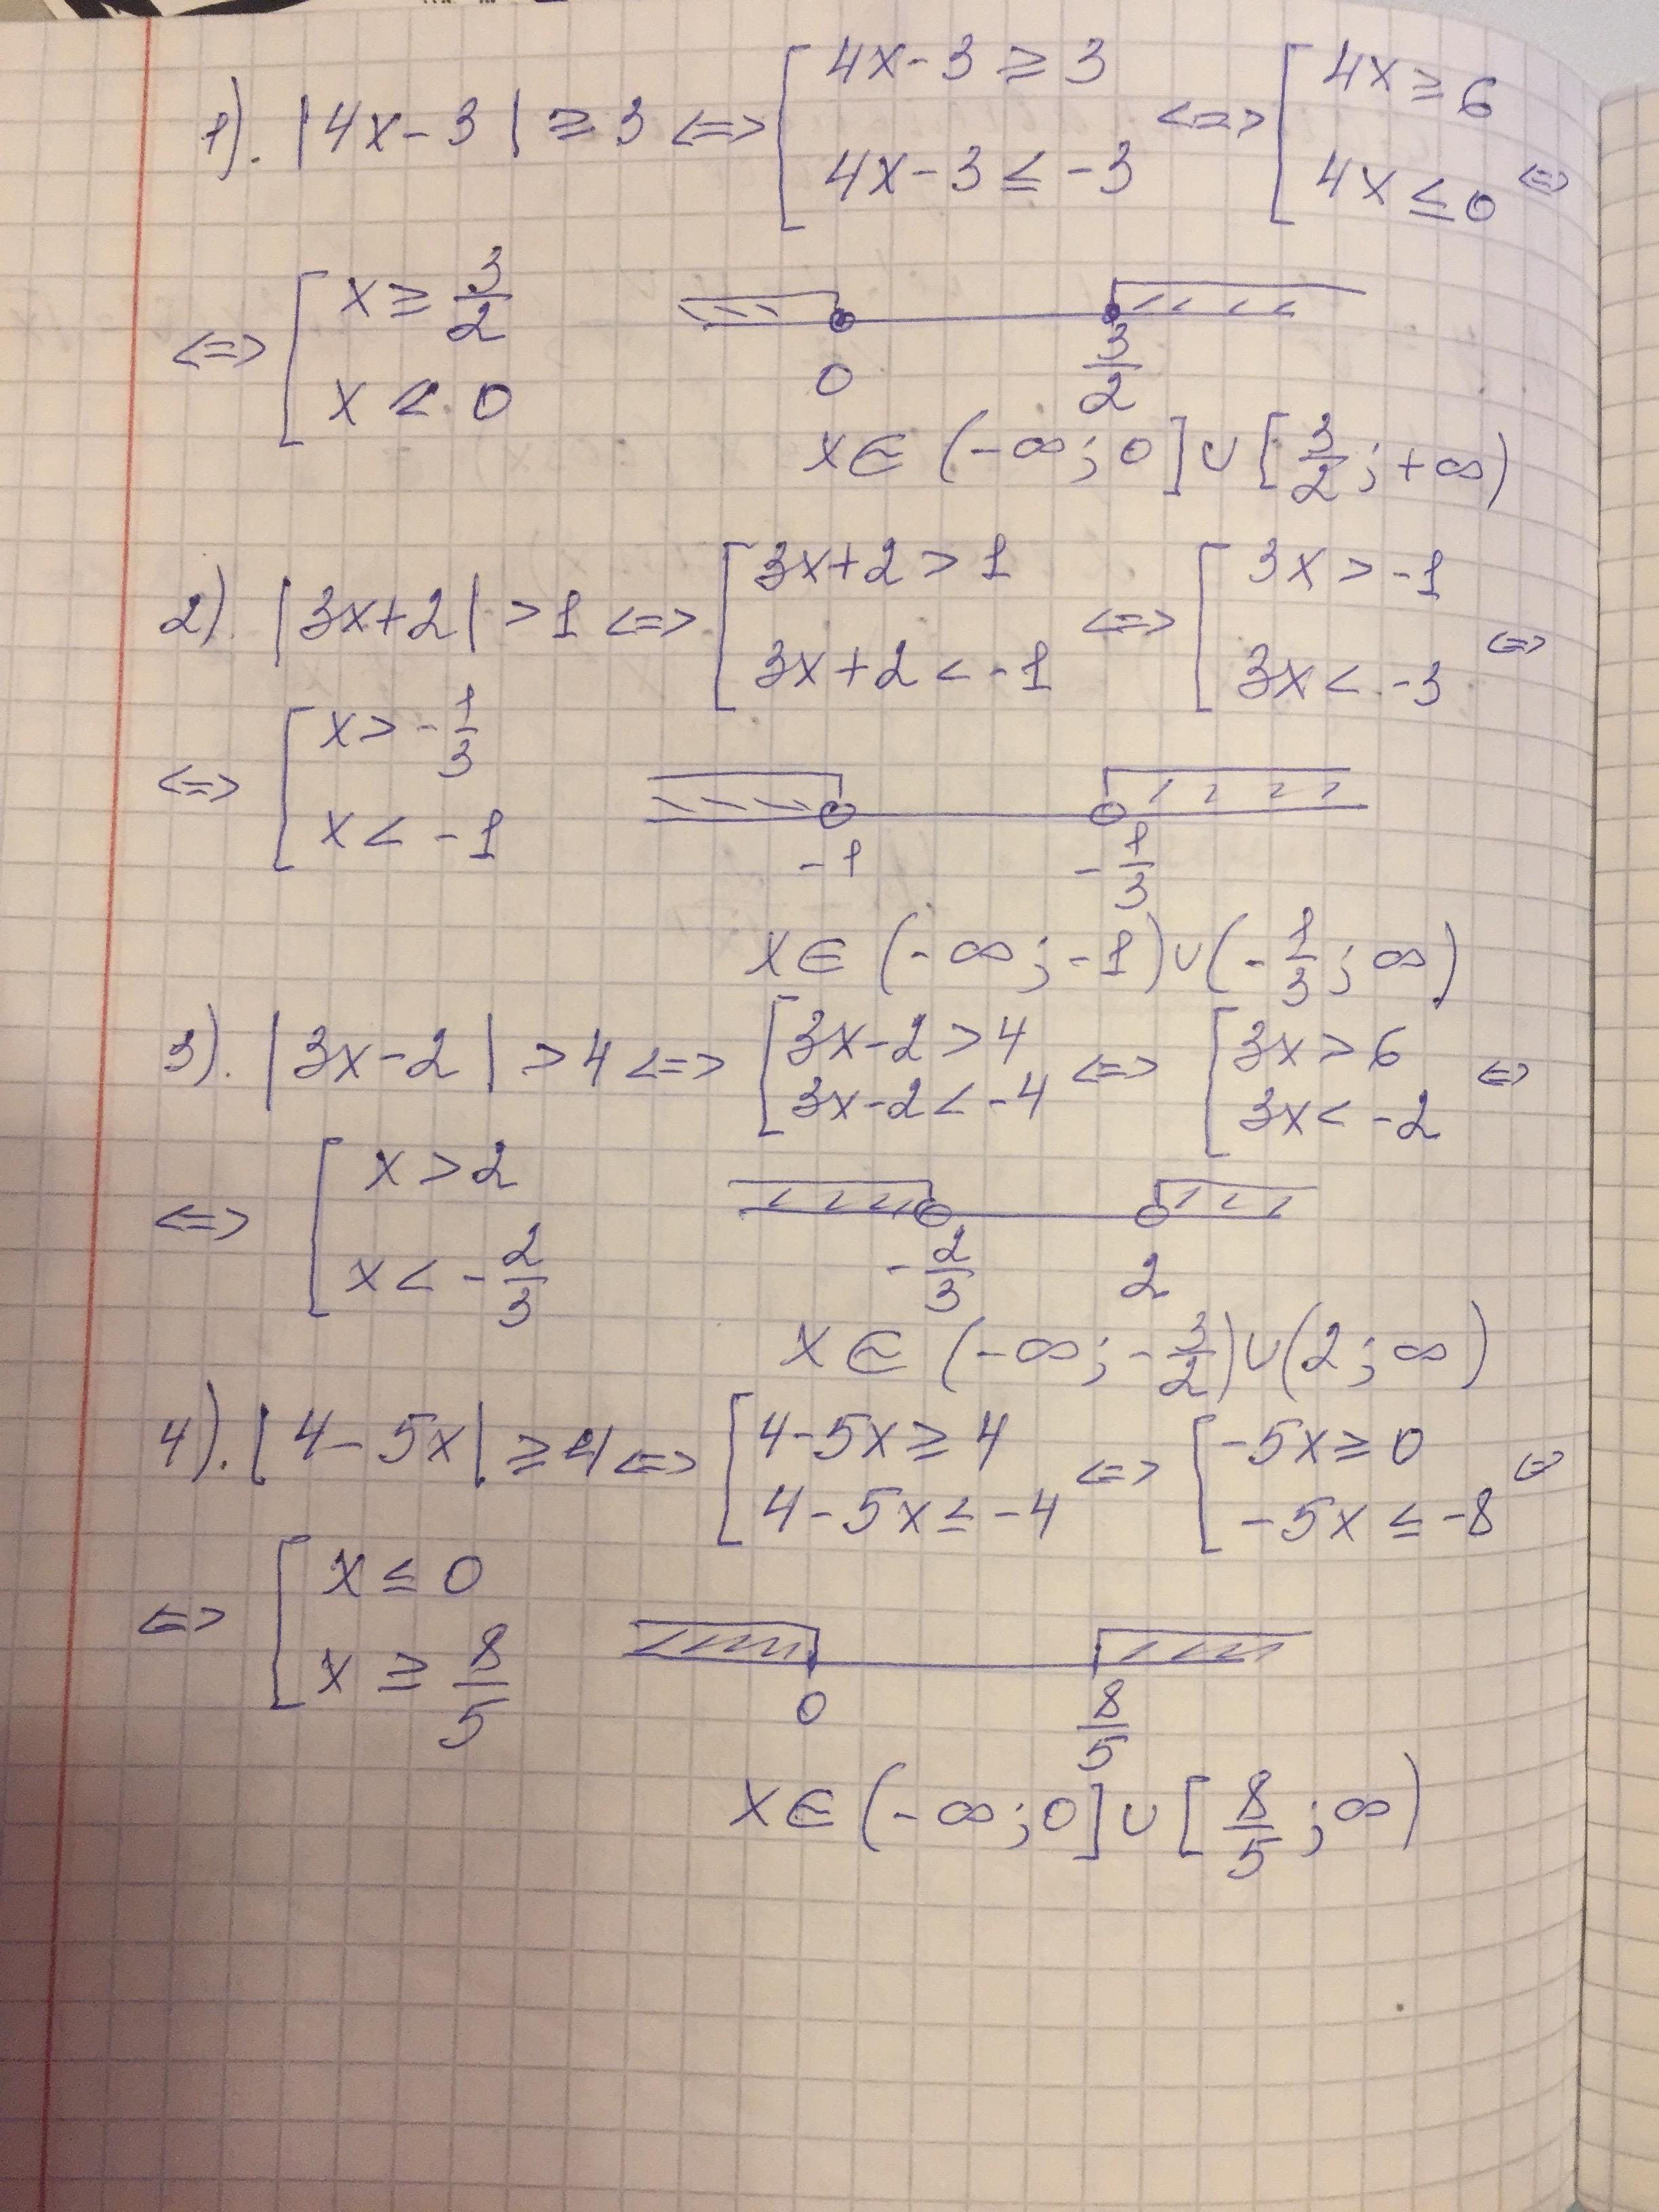 1). |4x-3| ≥ 3 <=> [ 4x-3 ≥ 3 4x-3 ≤ -3 <=> [ 4x ≥ 6 4x ≤ 0 <=>
<=> [ x ≥ 3/2 x < 0
0 3/2
x ∈ (-∞; 0] ∪ [3/2; +∞)
2). |3x+2| > 1 <=> [ 3x+2 > 1 3x+2 < -1 <=> [ 3x > -1 3x < -3 <=>
<=> [ x > -1/3 x < -1
-1 -1/3
x ∈ (-∞; -1) ∪ (-1/3; ∞)
3). |3x-2| > 4 <=> [ 3x-2 > 4 3x-2 < -4 <=> [ 3x > 6 3x < -2 <=>
<=> [ x > 2 x < -2/3
-2/3 2
x ∈ (-∞; -3/2) ∪ (2; ∞)
4). |4-5x| ≥ 4 <=> [ 4-5x ≥ 4 4-5x ≤ -4 <=> [ -5x ≥ 0 -5x ≤ -8 <=>
<=> [ x ≤ 0 x ≥ 8/5
0 8/5
x ∈ (-∞; 0] ∪ [8/5; ∞)